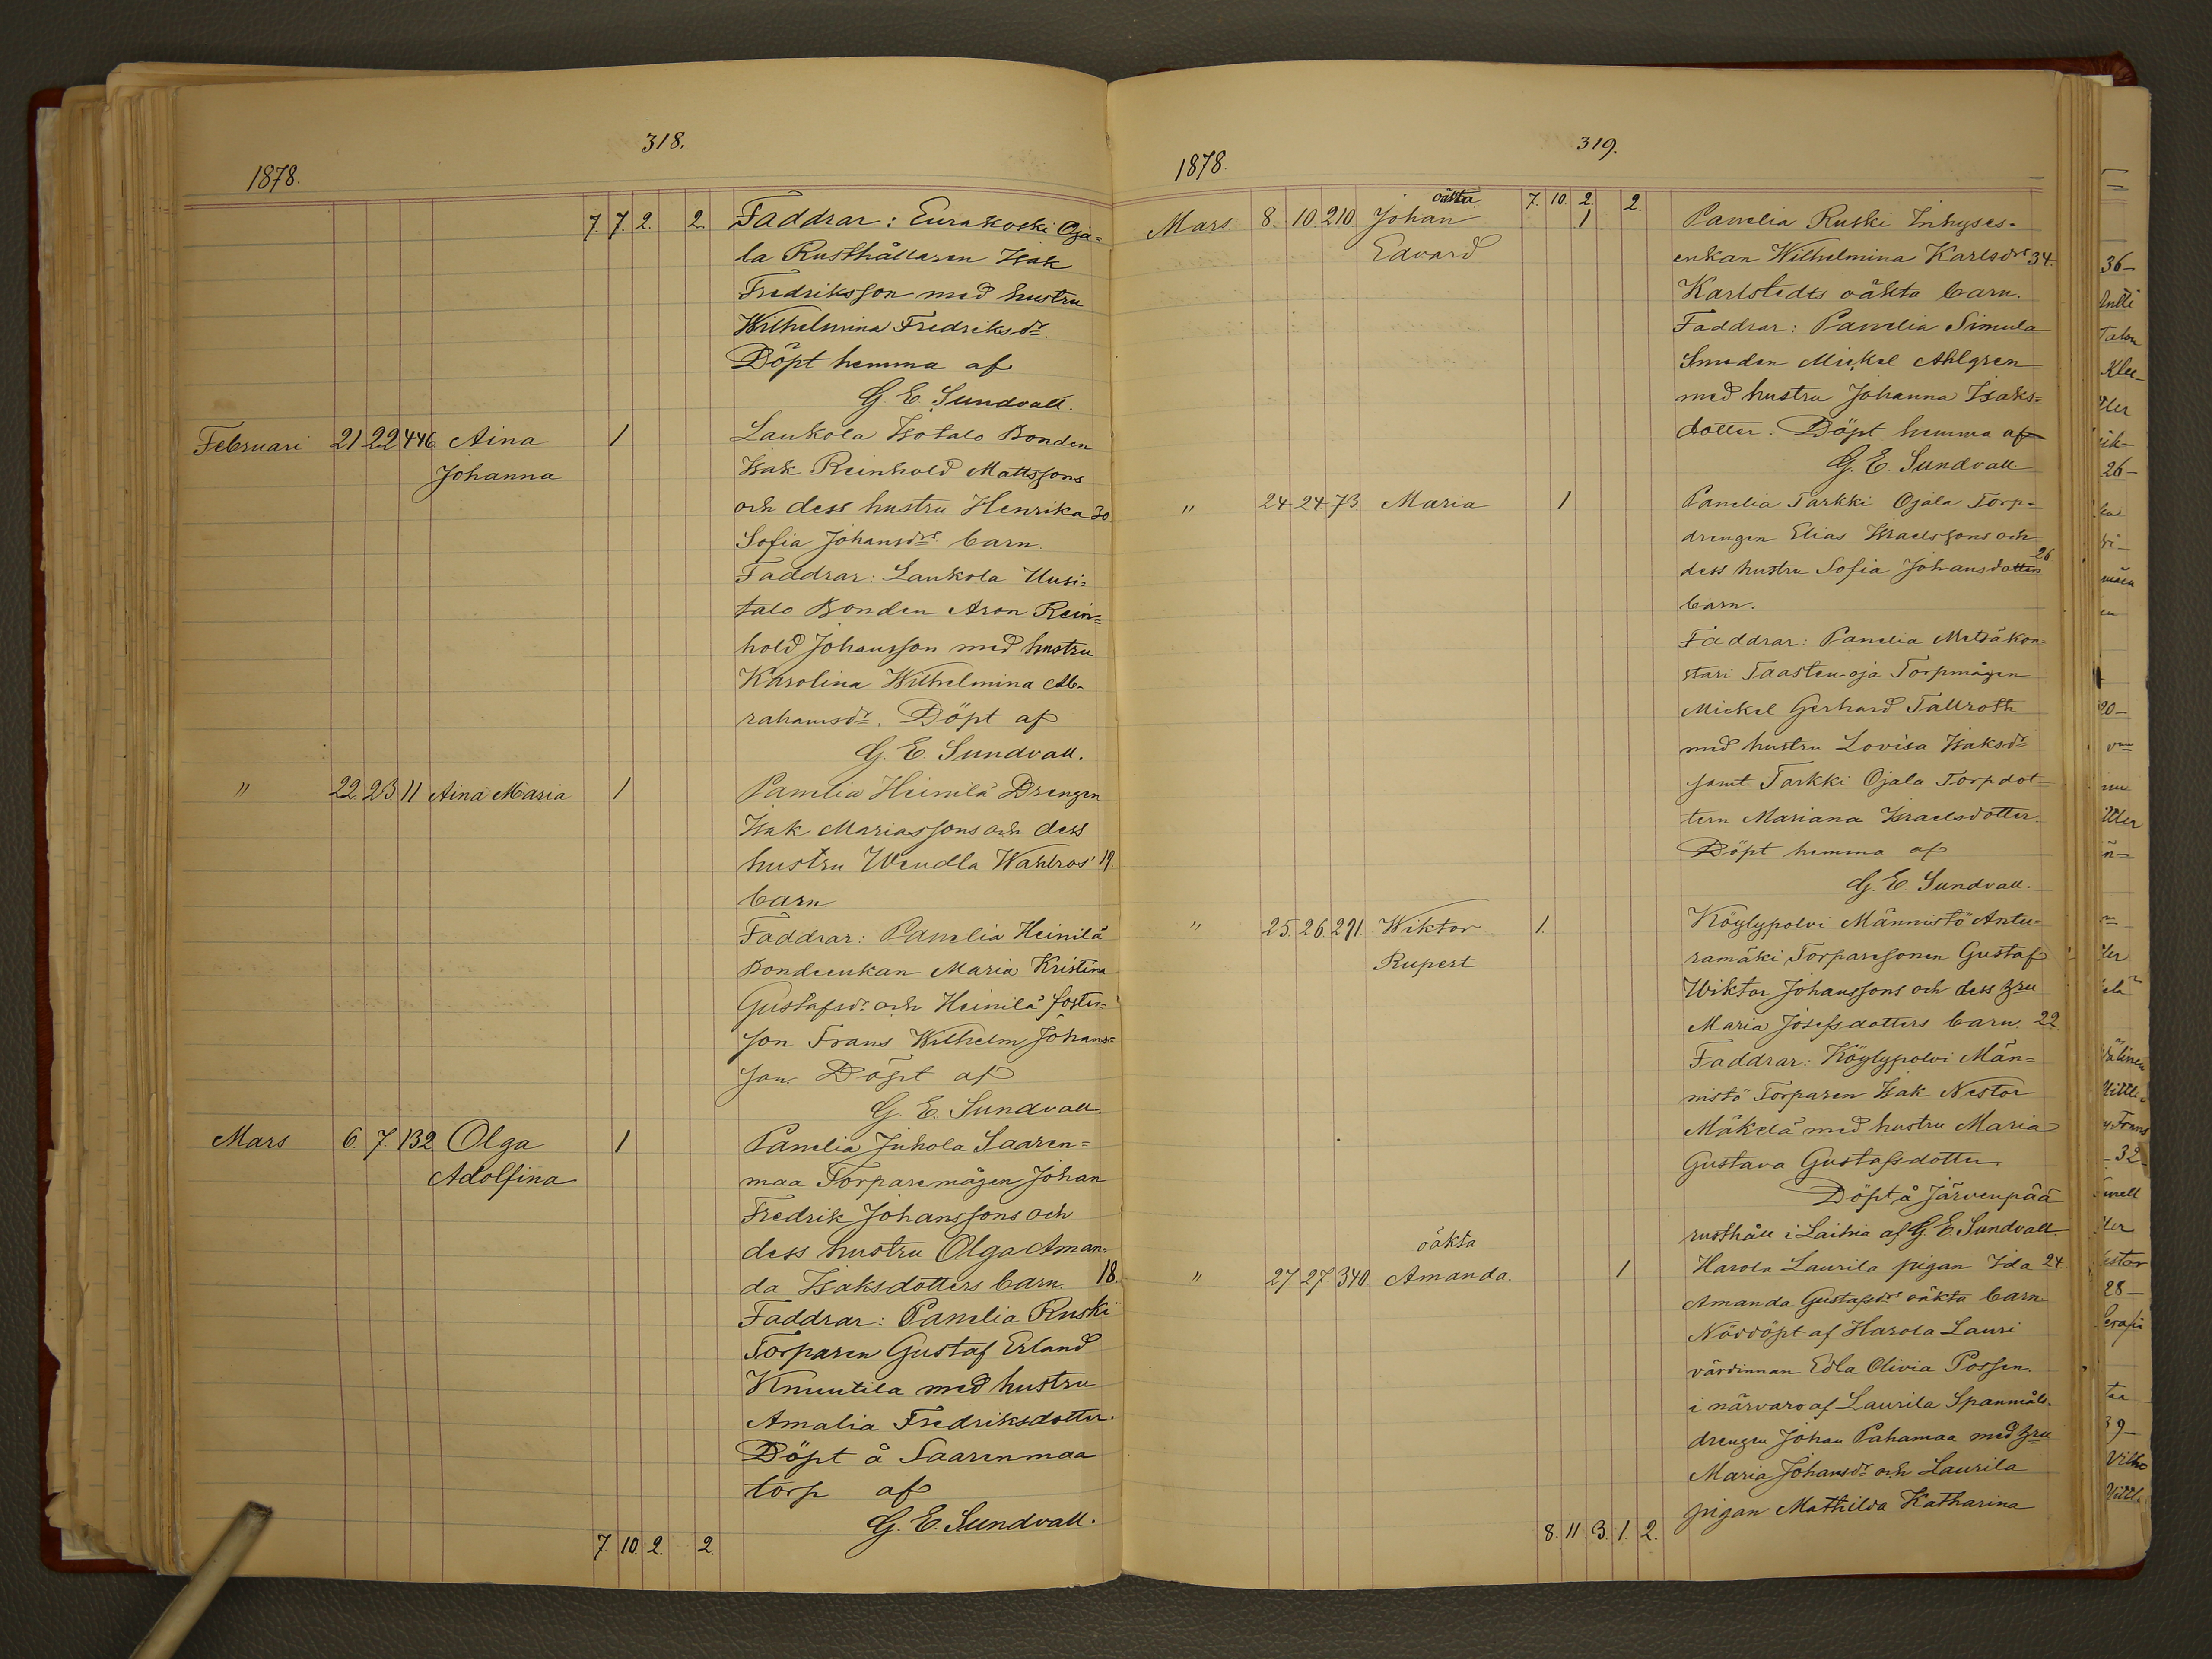 318.
1878.
7. 7. 2. 2. Faddrar: Eurakoski Oja=
la Rusthållaren Isak
Fredriksson med hustru
Wilhelmina Fredriksdr.
Döpt hemma af
G. E. Sundvall.
Februari 21 22 446 Aina 1 Laukola Isotalo Bonden
Johanna Isak Reinhold Mattssons
och dess hustru Henrika 30
Sofia Johansdrs barn.
Faddrar: Laukola Uusi=
talo Bonden Aron Rein=
hold Johansson med hustru
Karolina Wilhelmina Ab=
rahamsdr. Döpt af
G. E. Sundvall.
" 22. 23. 11 Aina Maria 1 Panelia Heinilä Drengen
Isak Mariassons och dess
hustru Wendla Wahlros' 19.
barn
Faddrar: Panelia Heinilä
Bondeenkan Maria Kristina
Gustafsdr. och Heinilä foster=
son Frans Wilhelm Johans=
son. Döpt af
G. E. Sundvall.
Mars 6. 7. 132 Olga 1 Panelia Juhola Saaren=
Adolfina maa Torparemågen Johan
Fredrik Johanssons och
dess hustru Olga Aman=
da Isaksdotters barn. 18.
Faddrar: Panelia Ruski
Torparen Gustaf Erland
Knuutila med hustru
Amalia Fredriksdotter.
Döpt å Saarenmaa
torp af
G. E. Sundvall.
7. 10. 2. 2.
319.
1878.
oäkta 7. 10. 2. 2.
Mars 8. 10. 210. Johan 1 Panelia Ruski Inhyses=
Edvard enkan Wilhelmina Karlsdrs 34.
Karlstedts oäkta barn.
Faddrar: Panelia Simula
Smeden Mickel Ahlgren
med hustru Johanna Isaks=
dotter. Döpt hemma af
G. E. Sundvall.
" 24 24 73. Maria 1 Panelia Tarkki Ojala Torp=
drengen Elias Israelssons och
dess hustru Sofia Johansdotters 26
barn.
Faddrar: Panelia Metsäkon=
stari Taasten-oja Torpmågen
Mickel Gerhard Tallroth
med hustru Lovisa Isaksdr
samt Tarkki Ojala Torpdot=
tern Mariana Israelsdotter.
Döpt hemma af
G. E. Sundvall.
" 25. 26. 291. Wiktor 1. Köylypolvi Männistö Antu=
Rupert ramäki Torparesonen Gustaf
Wiktor Johanssons och dess hru
Maria Josefsdotters barn. 22
Faddrar: Köylypolvi Män=
nistö Torparen Isak Nestor
Mäkelä med hustru Maria
Gustava Gustafsdotter.
Döpt å Järvenpää
rusthåll i Laihia af G. E. Sundvall.
oäkta
" 27 27 340 Amanda. 1 Harola Laurila pigan Ida 24
Amanda Gustafsdrs oäkta barn
Nöddöpt af Harola Lauri
värdinnan Edla Olivia Possen.
i närvaro af Laurila Spanmåls=
drengen Johan Pahamaa med hru
Maria Johansdr och Laurila
pigan Mathilda Katharina
8. 11 3. 1. 2.